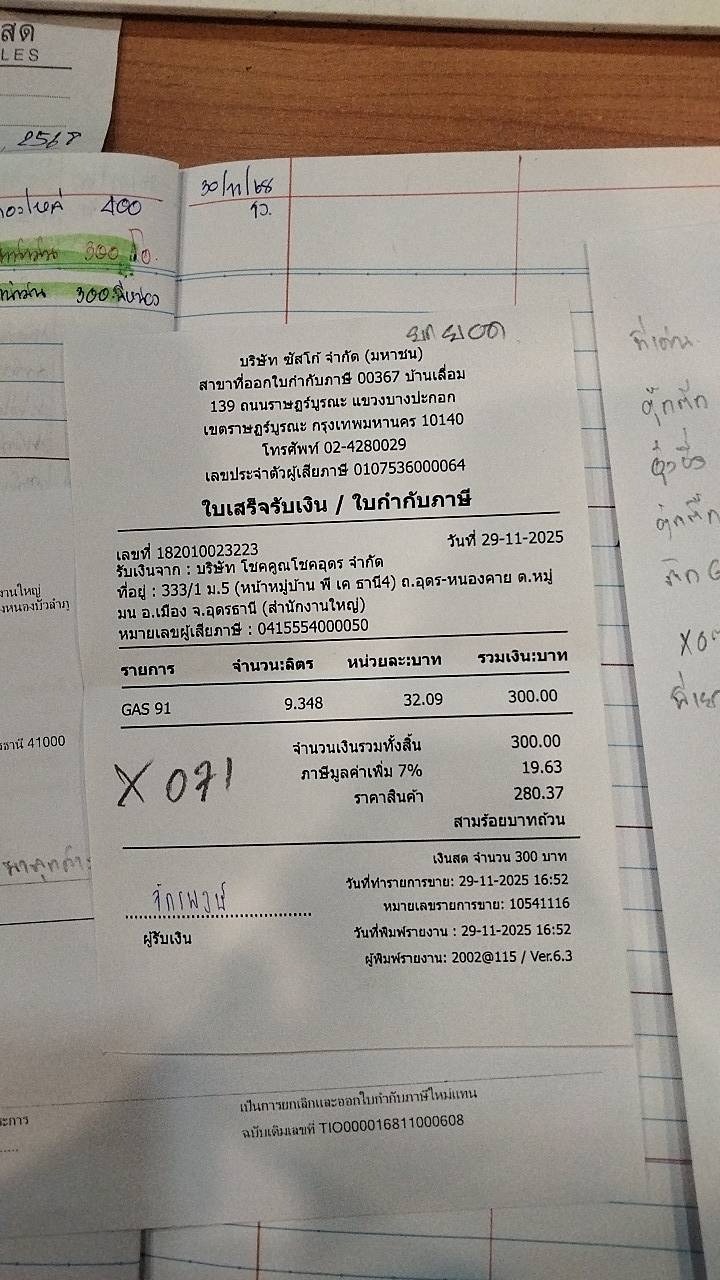 สด
LES
2568
400
300
300
30/11/68
บริษัท ซัสโก้ จำกัด (มหาชน)
สาขาที่ออกใบกำกับภาษี 00367 บ้านเลื่อม
139 ถนนราษฎร์บูรณะ แขวงบางปะกอก
เขตราษฎร์บูรณะ กรุงเทพมหานคร 10140
โทรศัพท์ 02-4280029
เลขประจำตัวผู้เสียภาษี 0107536000064
ใบเสร็จรับเงิน / ใบกำกับภาษี
เลขที่ 182010023223 วันที่ 29-11-2025
รับเงินจาก : บริษัท โชคคูณโชคอุดร จำกัด
ที่อยู่ : 333/1 ม.5 (หน้าหมู่บ้าน พี เค ธานี4) ถ.อุดร-หนองคาย ต.หมู
มน อ.เมือง จ.อุดรธานี (สำนักงานใหญ่)
หมายเลขผู้เสียภาษี : 0415554000050
รายการ จำนวน:ลิตร หน่วยละ:บาท รวมเงิน:บาท
GAS 91 9.348 32.09 300.00
จำนวนเงินรวมทั้งสิ้น 300.00
ภาษีมูลค่าเพิ่ม 7% 19.63
ราคาสินค้า 280.37
สามร้อยบาทถ้วน
X 071
เงินสด จำนวน 300 บาท
วันที่ทำรายการขาย: 29-11-2025 16:52
หมายเลขรายการขาย: 10541116
วันที่พิมพ์รายงาน : 29-11-2025 16:52
ผู้พิมพ์รายงาน: 2002@115 / Ver.6.3
จักรพงษ์
ผู้รับเงิน
งานใหญ่
งหนองบัวลำภู
รธานี 41000
ะการ
เป็นการยกเลิกและออกใบกำกับภาษีใหม่แทน
ฉบับเดิมเลขที่ TIO000016811000608